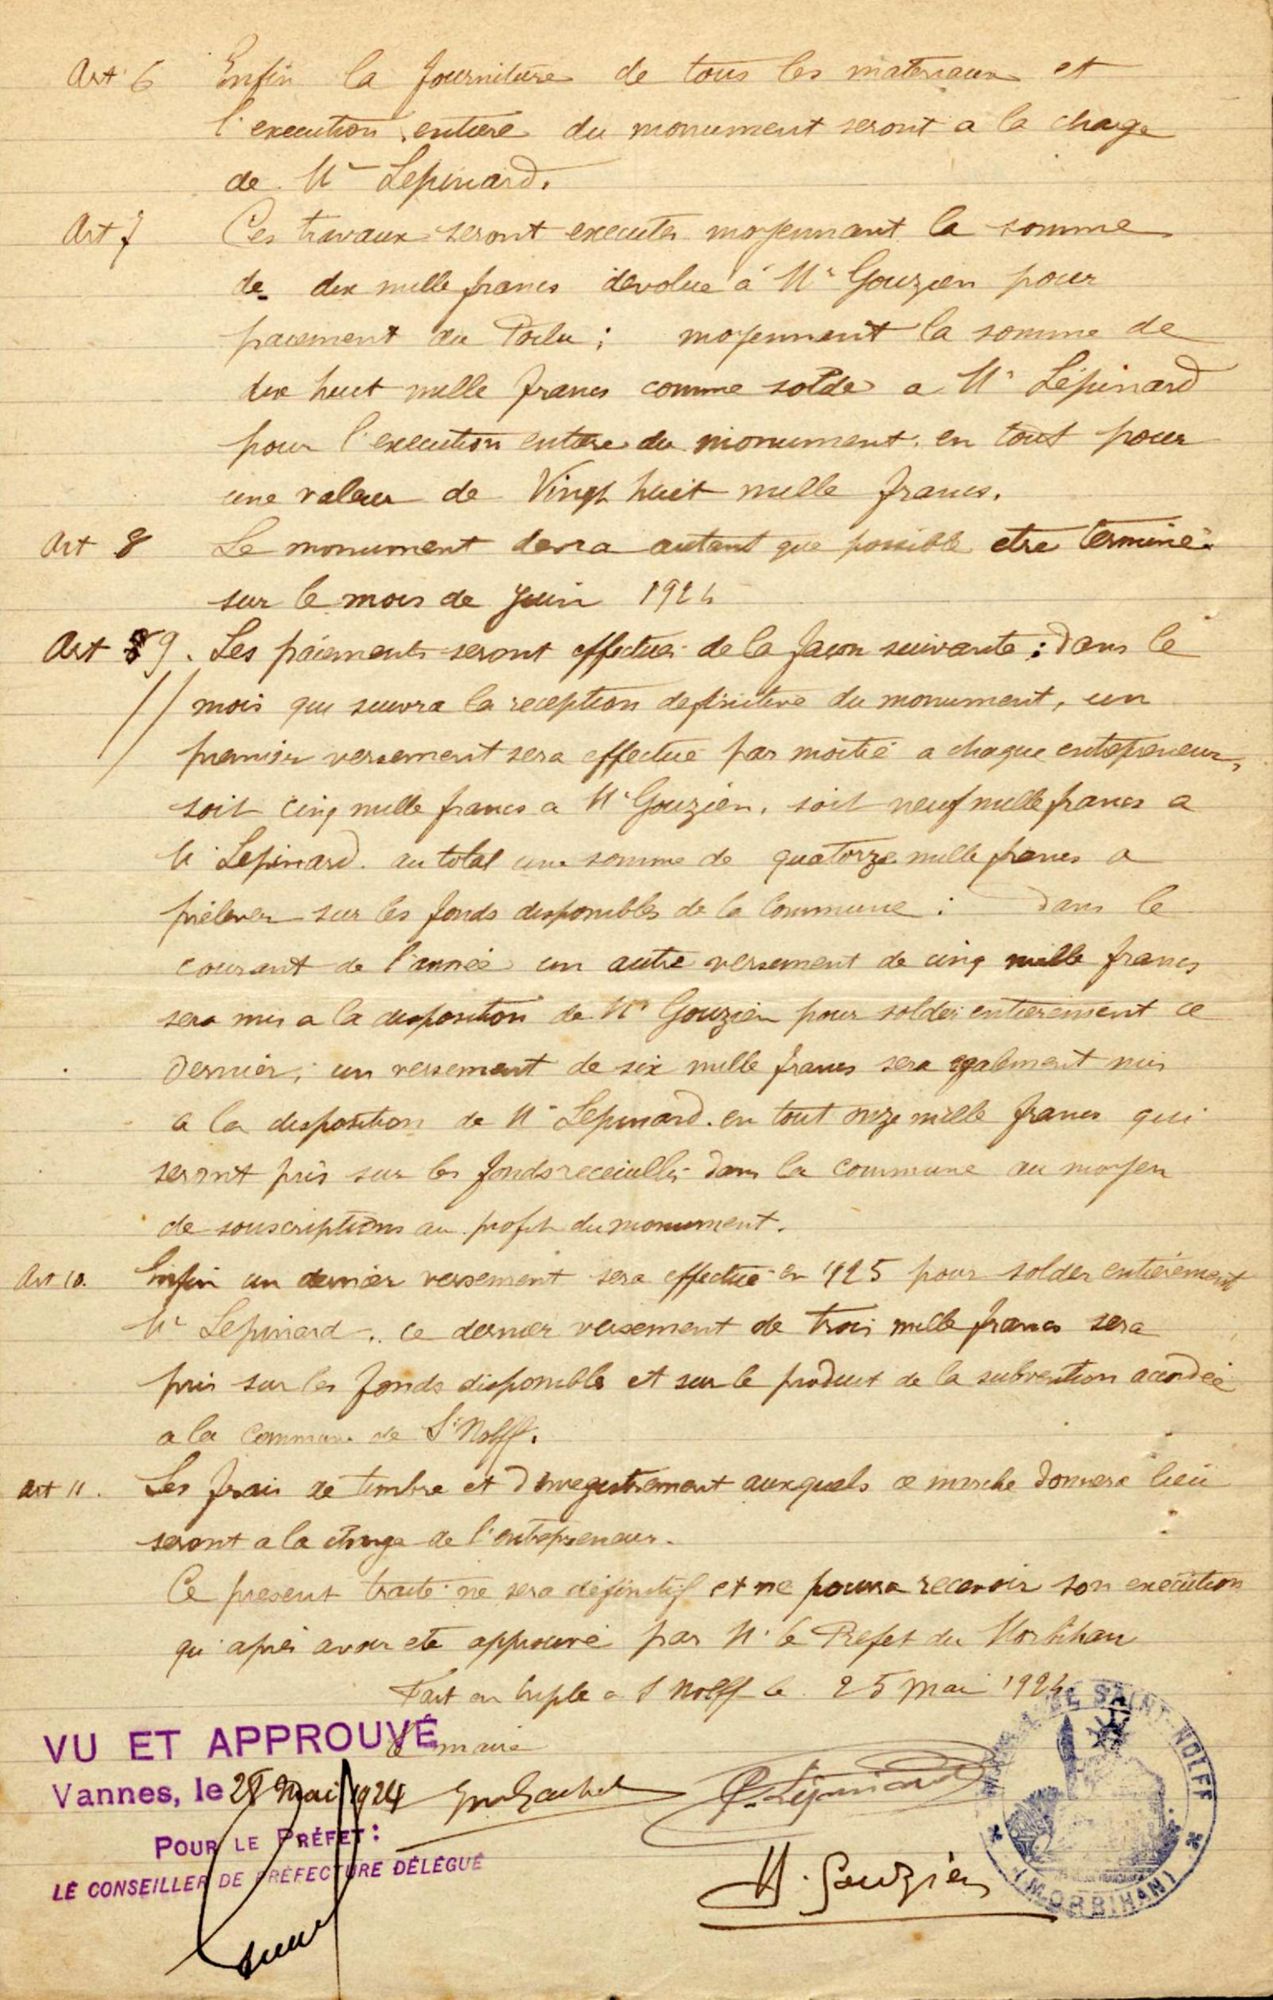 Art 6 Enfin la fourniture de tous les materiaux et
l'execution entiere du monument seront a la charge
de Mr Lepinard.
Art 7 Ces travaux seront executes moyennant la somme
de dix mille francs devolue à Mr Gouzien pour
paiement du Poilu ; moyennent la somme de
dix huit mille francs comme solde a Mr Lépinard
pour l'execution entiere du monument. en tout pour
une valeur de Vingt huit mille francs.
Art 8 Le monument devra autant que possible etre terminé
sur le mois de Juin 1924
Art 9. Les paiements seront effectues de la façon suivante : dans le
mois qui suivra la reception definitive du monument, un
premier versement sera effectué par moitié a chaque entrepreneur,
soit cinq mille francs a Mr Gouzien, soit neuf mille francs a
Mr Lepinard. au total une somme de quatorze mille francs a
prélever sur les fonds disponibles de la Commune : dans le
courant de l'année un autre versement de cinq mille francs
sera mis a la disposition de Mr Gouzien pour solder entierement ce
dernier, un versement de six mille francs sera egalement mis
a la disposition de Mr Lepinard. en tout onze mille francs qui
seront pris sur les fonds receuillis dans la commune au moyen
de souscriptions au profit du monument.
Art 10. Enfin un dernier versement sera effectué en 1925 pour solder entièrement
Mr Lepinard. ce dernier versement de trois mille francs sera
pris sur les fonds disponibles et sur le produit de la subvention accordée
a la Commune de St Nolff.
Art 11. Les frais de timbre et d'enregistrement auxquels ce marche donnera lieu
seront a la charge de l'entrepreneur.
Ce present traité ne sera définitif et ne pourra recevoir son exécution
qu'après avoir ete approuvé par Mr le Prefet du Morbihan
Fait en triple a St Nolff le 25 Mai 1924
VU ET APPROUVÉ
Le maire
Vannes, le 28 Mai 1924
C. Lépinard
POUR LE PRÉFET :
LE CONSEILLER DE PRÉFECTURE DÉLÉGUÉ
H. Gouzien
MAIRIE DE SAINT-NOLFF
(MORBIHAN)